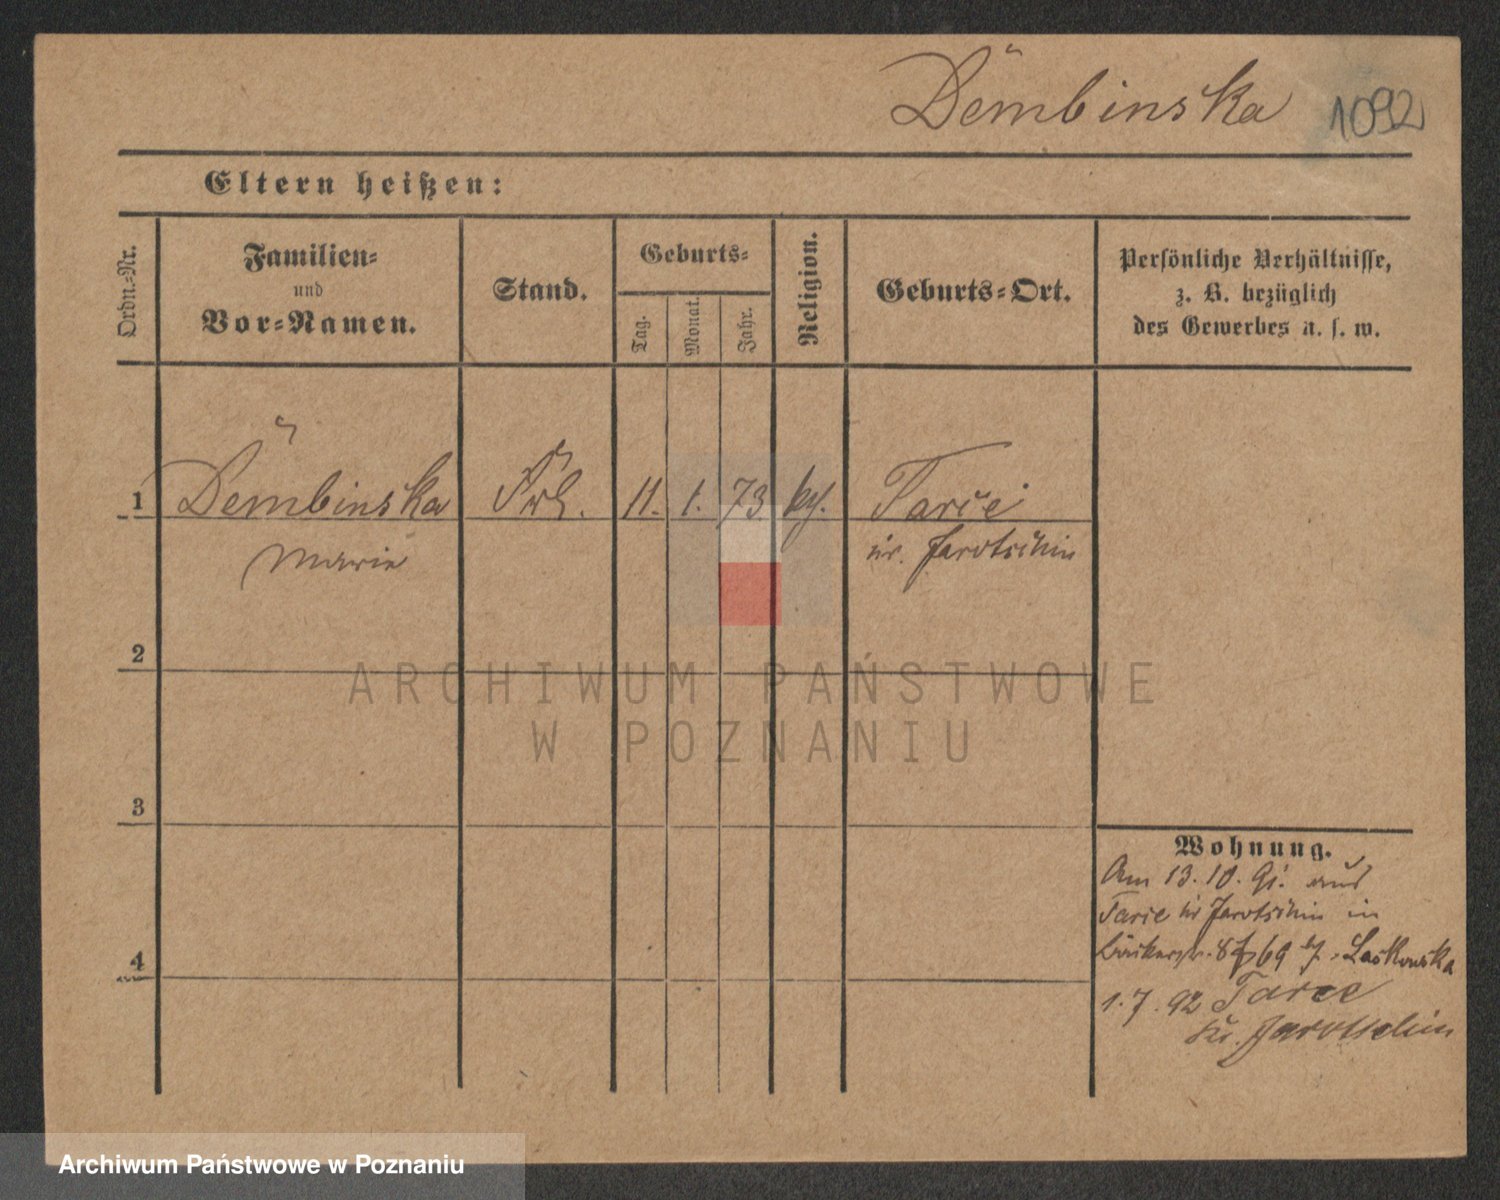 Dembinska 1092
Eltern heißen:
Ordn.-Nr.
Familien-
und
Vor-Namen.
Stand.
Geburts-
Tag.
Monat.
Jahr.
Religion.
Geburts-Ort.
Persönliche Verhältnisse,
z. B. bezüglich
des Gewerbes u. s. w.
1 Dembinska Frl. 11. 1. 73 Tarce
Marie Kr. Jarotschin
2
3
4
Wohnung.
Am 13. 10. 91. aus
Tarce Kr Jarotschin in
Bäckerstr. 8 69 Laskowska
1. 7. 92 Tarce
Kr. Jarotschin
ARCHIWUM PAŃSTWOWE
W POZNANIU
Archiwum Państwowe w Poznaniu